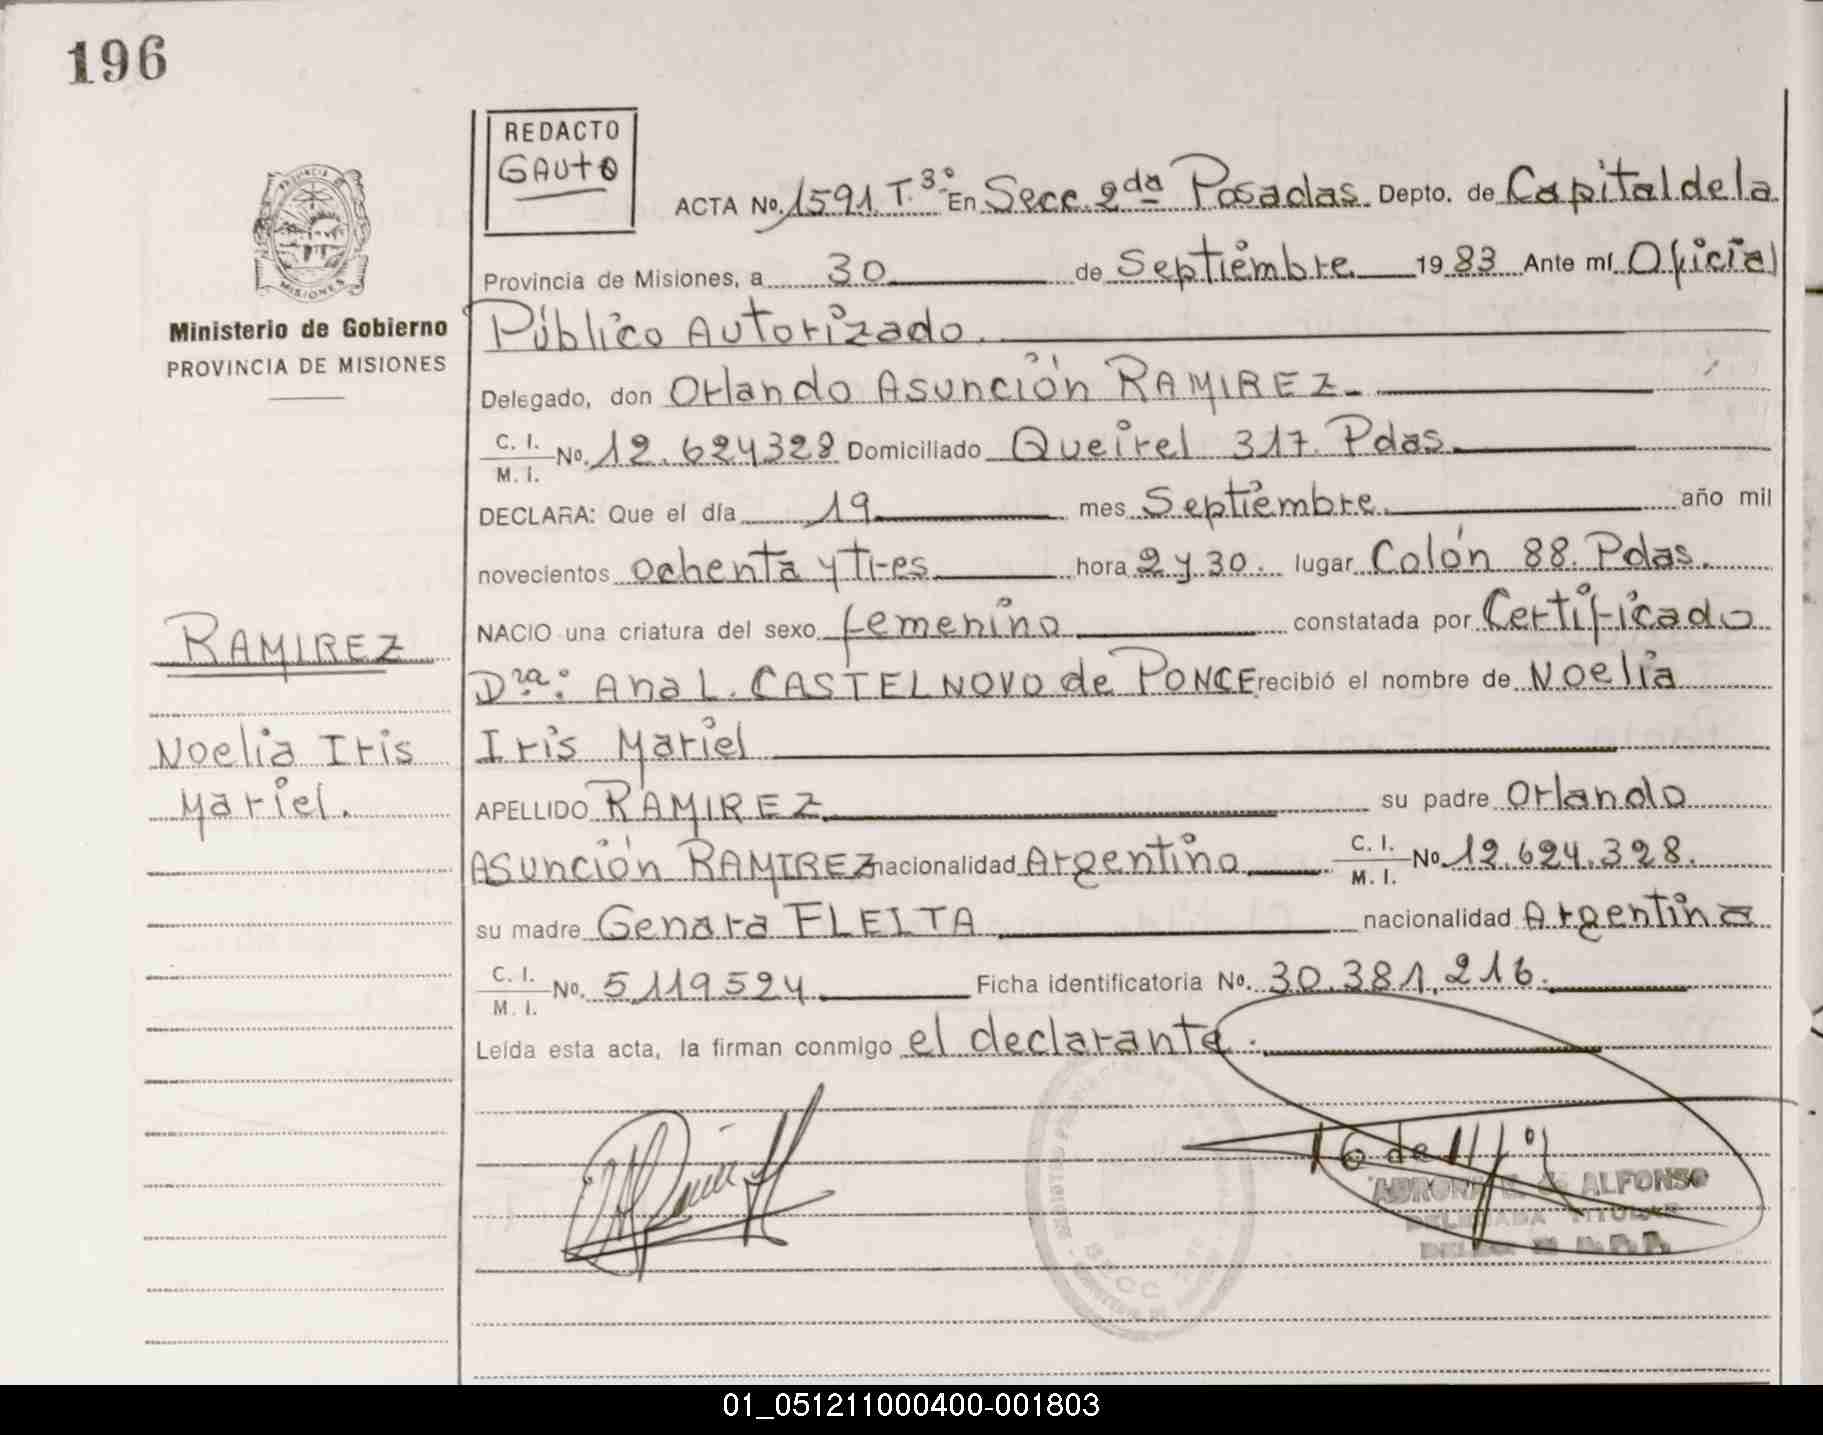 196
REDACTO
GAUTO
ACTA No. 1591. T. 3º En Secc. 2da Posadas. Depto. de Capital de la
Provincia de Misiones, a 30 de Septiembre 1983 Ante mí Oficial
Ministerio de Gobierno
PROVINCIA DE MISIONES
MISIONES
Público Autorizado.
Delegado, don Orlando Asunción RAMIREZ.
C. I.
M. I. No. 12.624328 Domiciliado Queirel 317. Pdas.
DECLARA: Que el día 19 mes Septiembre. año mil
novecientos ochenta y tres hora 2 y 30. lugar Colón 88. Pdas.
NACIO una criatura del sexo femenino constatada por Certificado
Dra: Ana L. CASTELNOVO de PONCE recibió el nombre de Noelia
Iris Mariel
APELLIDO RAMIREZ su padre Orlando
Asunción RAMIREZ nacionalidad Argentino C. I.
M. I. No. 12.624.328.
su madre Genara FLEITA nacionalidad Argentina
C. I.
M. I. No. 5.119524 Ficha identificatoria No. 30.381.216.
Leída esta acta, la firman conmigo el declarante.
RAMIREZ
Noelia Iris
Mariel.
AURORA E. de ALFONSO
DELEGADA TITULAR
01_051211000400-001803